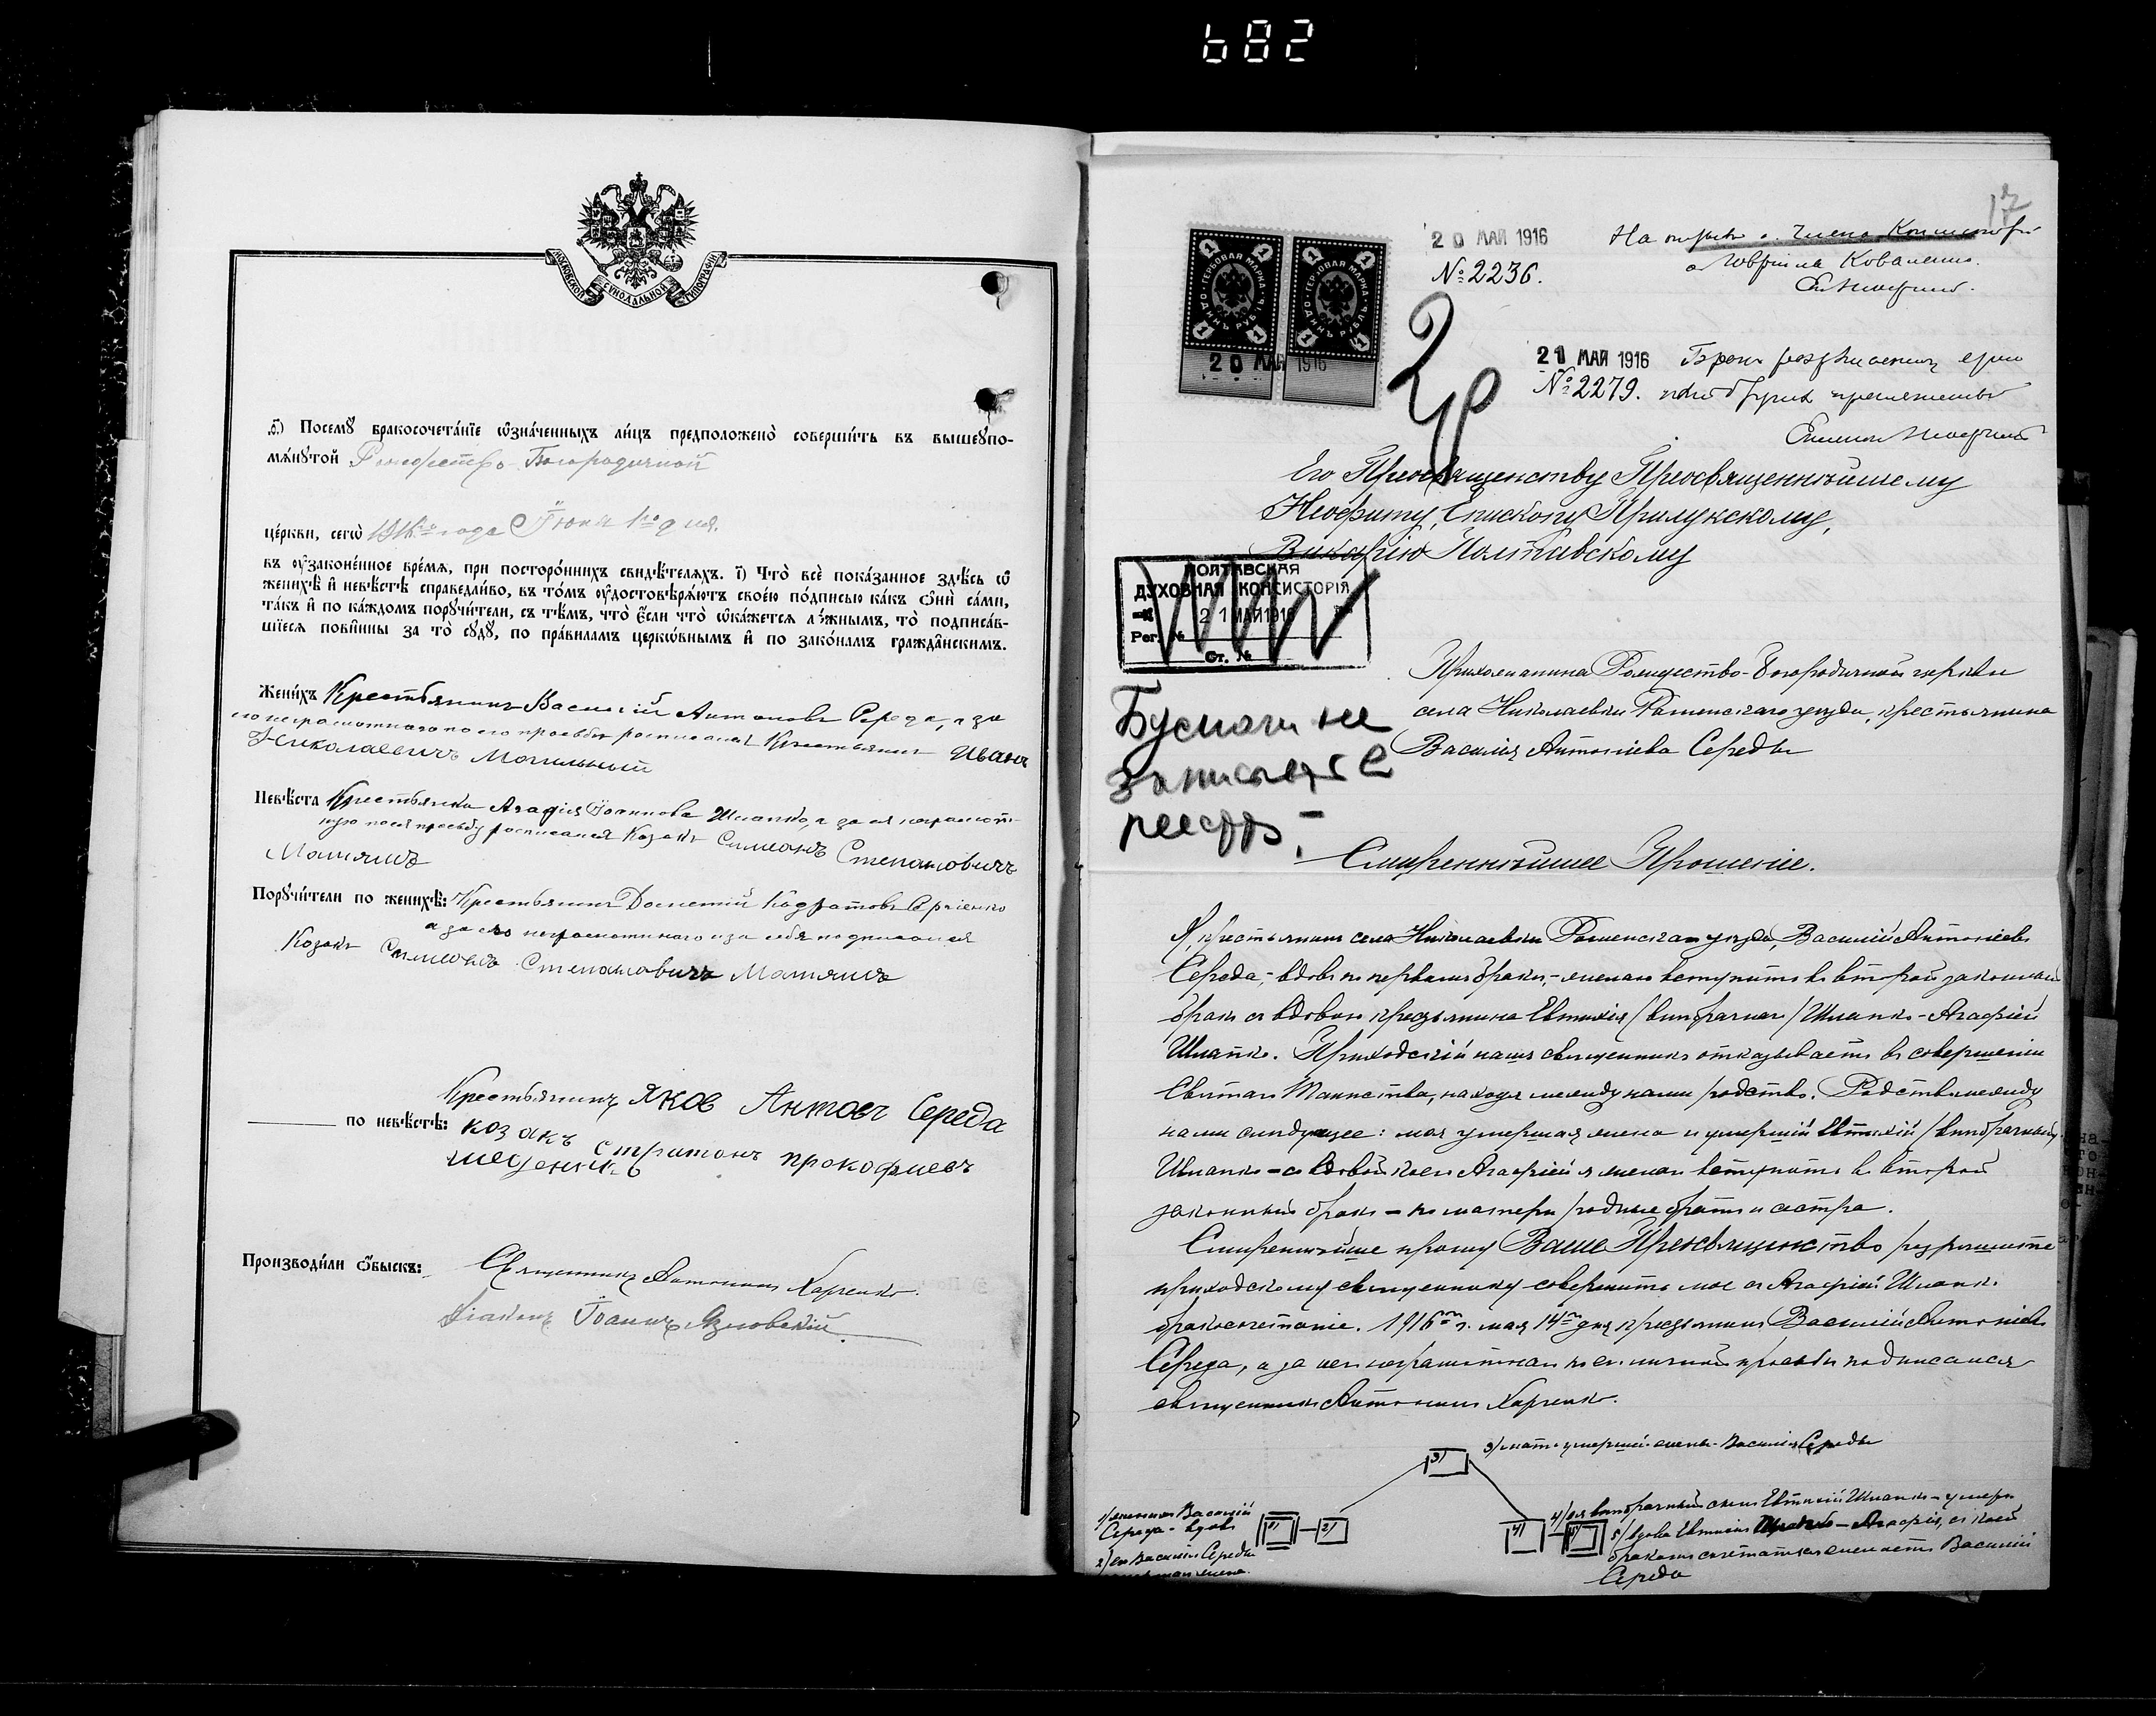 682
МОСКОВСКОЙ СѴНОДАЛЬНОЙ ТИПОГРАФІИ
Посемꙋ̀ бракосочета́нїе ѡ҆зна́ченныхъ ли́цъ предположено̀ соверши́ть въ вышеꙋпо-
мѧ́нꙋтой Рождество-Богородичной
це́ркви, сегѡ̀ 1916го года Іюня 1го дня.
въ ᲂу҆зако́ненное вре́мѧ, при посторо́ннихъ свидѣ́телѧхъ. і҃) Что̀ всѐ пока́занное здѣ́сь ѡ҆
женихѣ̀ и҆ невѣ́стѣ справедли́во, въ то́мъ ᲂу҆достовѣрѧ́ютъ свое́ю по́дписью ка́къ ѻ҆нѝ са́ми,
та́къ и҆ по ка́ждомъ порꙋчи́тели, съ тѣ́мъ, что̀ є҆́сли что̀ ѡ҆ка́жется ло́жнымъ, то̀ подписа́в-
шїеся пови́нны за то̀ сꙋдꙋ̀, по пра́виламъ церкѡ́внымъ и҆ по зако́намъ гражда̑нскимъ.
Жени́хъ Крестьянинъ Василій Антоновъ Середа, а за
его неграмотного по его просьбѣ росписался Крестьянинъ Иванъ
Николаевичъ Могильный
Невѣ́ста Крестьянка Агафія Іоаннова Шлапко, а за ея неграмот-
ную по ея просьбу росписался Козакъ Симеонъ Степановичъ
Матяшъ
Порꙋчи́тели по женихѣ̀: Крестьянинъ
а за его неграмотного и за себя подписался
Козакъ Симеонъ Степановичъ Матяшъ
Крестьянинъ Яков Антовъ Середа
по невѣ́стѣ: козакъ стратонъ прокофиевъ
Производи́ли ѻ҆́быскъ: Священникъ Антоній Харченко.
Діаконъ Іоаннъ
17
ГЕРБОВАЯ МАРКА ОДИНЪ РУБЛЬ 1
ГЕРБОВАЯ МАРКА ОДИНЪ РУБЛЬ 1
20 МАЙ 1916
20 МАЙ 1916
№ 2236.
2р
21 МАЙ 1916
№ 2279.
Его Преосвященству Преосвященнѣйшему
Неофиту, Епископу Прилукскому,
Викарію Полтавскому
ПОЛТАВСКАЯ
ДУХОВНАЯ КОНСИСТОРІЯ
21 МАЙ 1916
Рег. №
Ст. №
Прихожанина Рождество-Богородичной церкви
села Николаевки Роменскаго уезда, крестьянина
Василія Антоніева Середы
Смиреннѣйшее Прошеніе.
Я, крестьянинъ села Николаевки Роменскаго уезда, Василій Антоніевъ
Середа, - вдовъ по первомъ бракѣ, - желаю вступить во второй законный
бракъ съ вдовою крестьянина Евтихія /внебрачнаго/ Шлапко - Агафіей
Шлапко. Приходскій нашъ священникъ отказываетъ въ совершеніи
Святаго Таинства, находя между нами родство. Родство между
нами слѣдующее: моя умершая жена и умершій Евтихій /внебрачный/
Шлапко - со вдовой коего Агафіей я желаю вступить во второй
законный бракъ - по матери родные братъ и сестра.
Смиреннѣйше прошу Ваше Преосвященство разрѣшить
приходскому священнику совершить мое съ Агафіей Шлапко
бракосочетаніе. 1916го г. мая 14го дня крестьянинъ Василій Антоніевъ
Середа, а за него неграмотнаго по его личной просьбѣ подписался
священникъ Антоній Харченко.
3/ мать умершей жены Василія Середы
3/
1/ женихъ Василій
Середа - вдовъ
2/ его Василія Середы
умершая жена
1/
2/
4/
5/
4/ ея внебрачный сынъ Евтихій Шлапко - умеръ
5/ вдова Евтихія Шлапко - Агафія, съ коей
бракомъ сочетаться желаетъ Василій
Середа